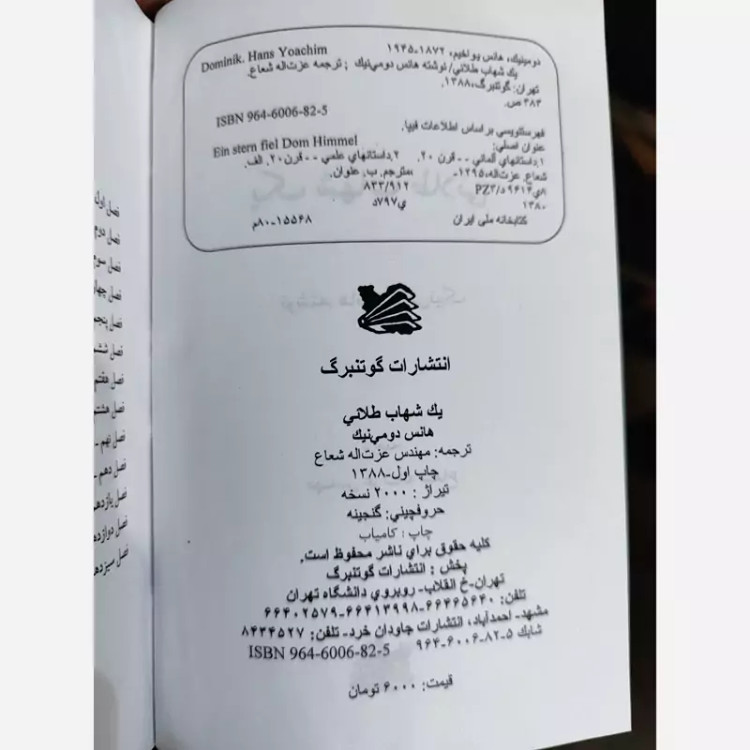 Dominik. Hans Yoachim
دومينيك، هانس يواخيم، ۱۸۷۲-۱۹۴۵
يك شهاب طلائي/ نوشته هانس دومي‌نيك ؛ ترجمه عزت‌اله شعاع.
تهران: گوتنبرگ، ۱۳۸۸.
۳۸۳ ص.
ISBN 964-6006-82-5
فهرستنويسي بر اساس اطلاعات فيپا.
عنوان اصلي: Ein stern fiel Dom Himmel
۱.داستانهاي آلماني -- قرن ۲۰. ۲.داستانهاي علمي -- قرن ۲۰. الف.
شعاع، عزت‌اله، ۱۲۹۵- ،مترجم. ب. عنوان.
۸ي۹۴۱۳د/PZ۳ ۸۳۳/۹۱۲
۱۳۸۰ ي۷۹۷د
كتابخانه ملي ايران ۱۵۵۶۸-۸۰م
انتشارات گوتنبرگ
يك شهاب طلائي
هانس دومي‌نيك
ترجمه: مهندس عزت‌اله شعاع
چاپ اول-۱۳۸۸
تيراژ : ۲۰۰۰ نسخه
حروفچيني: گنجينه
چاپ : كامياب
كليه حقوق براي ناشر محفوظ است.
پخش : انتشارات گوتنبرگ
تهران-خ انقلاب- روبروي دانشگاه تهران
تلفن: ۶۶۴۶۵۶۴۰-۶۶۴۱۳۹۹۸-۶۶۴۰۲۵۷۹
مشهد- احمدآباد، انتشارات جاودان خرد- تلفن: ۸۴۳۴۵۲۷
شابك ۵-۸۲-۶۰۰۶-۹۶۴ ISBN 964-6006-82-5
قيمت: ۶۰۰۰ تومان
فصل اول
فصل دوم
فصل سوم
فصل چهار
فصل پنجم
فصل ششم
فصل هفتم
فصل هشتم
فصل نهم -
فصل دهم -
فصل يازده
فصل دوازده
فصل سيزده